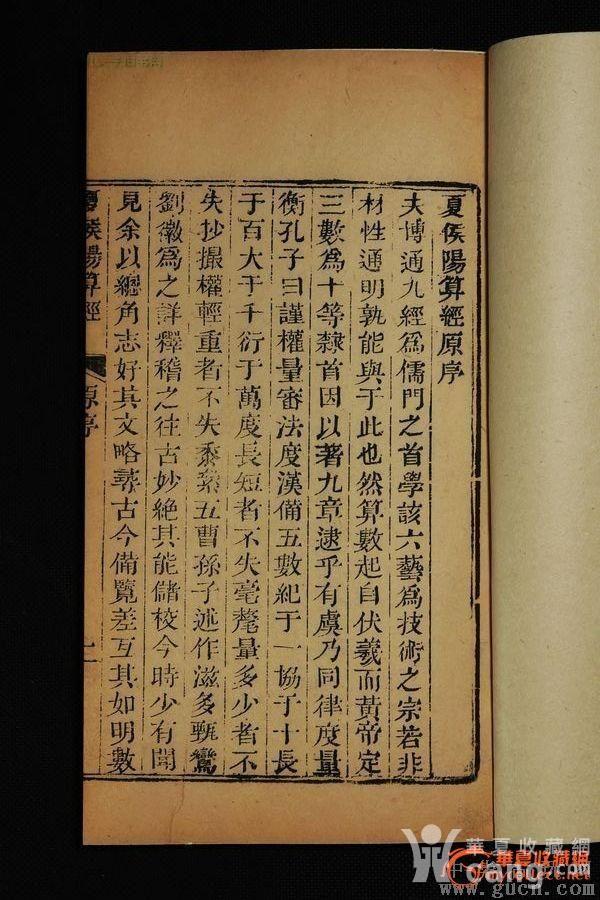 夏侯陽算經原序
夫博通九經爲儒門之首學該六藝爲技術之宗若非
材性通明孰能與于此也然算數起自伏羲而黃帝定
三數爲十等隸首因以著九章逮乎有虞乃同律度量
衡孔子曰謹權量審法度漢備五數紀于一協于十長
于百大于千衍于萬度長短者不失毫氂量多少者不
失抄撮權輕重者不失黍絫五曹孫子述作滋多甄鸞
劉徽爲之詳釋稽之往古妙絕其能儲校今時少有聞
見余以總角志好其文略尋古今備覽差互其如明數
夏侯陽算經
原序
一
華夏收藏網
華夏收藏網
www.gucn.com